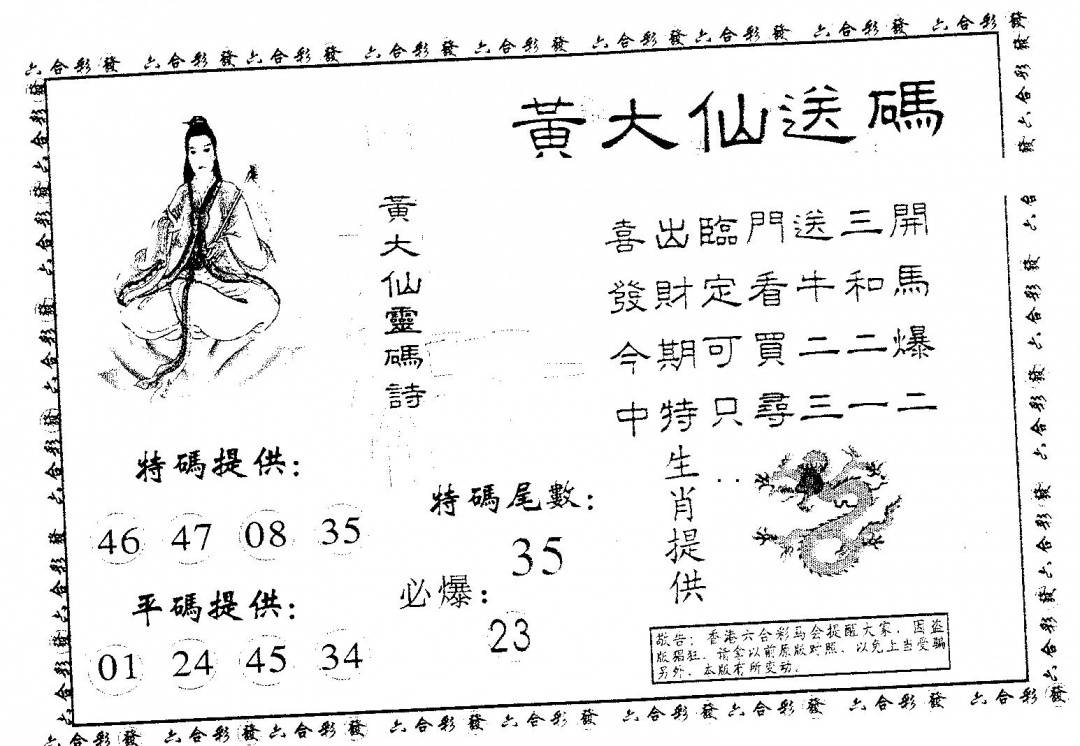 六合彩發 六合彩發六合彩發 六合彩發 六合彩發 六合彩發六合彩發 六合彩發 六合彩發
黃大仙送碼
黃大仙靈碼詩
喜出臨門送三開
發財定看牛和馬
今期可買二二爆
中特只尋三一二
特碼提供:
46 47 08 35
平碼提供:
01 24 45 34
特碼尾數:
35
必爆:
23
生肖提供
敬告:香港六合彩马会提醒大家,因盗
版猖狂,请拿以前原版对照,以免上当受骗
另外,本版有所变动.
六合彩發 六合彩發六合彩發 六合彩發 六合彩發 六合彩發六合彩發 六合彩發 六合彩發